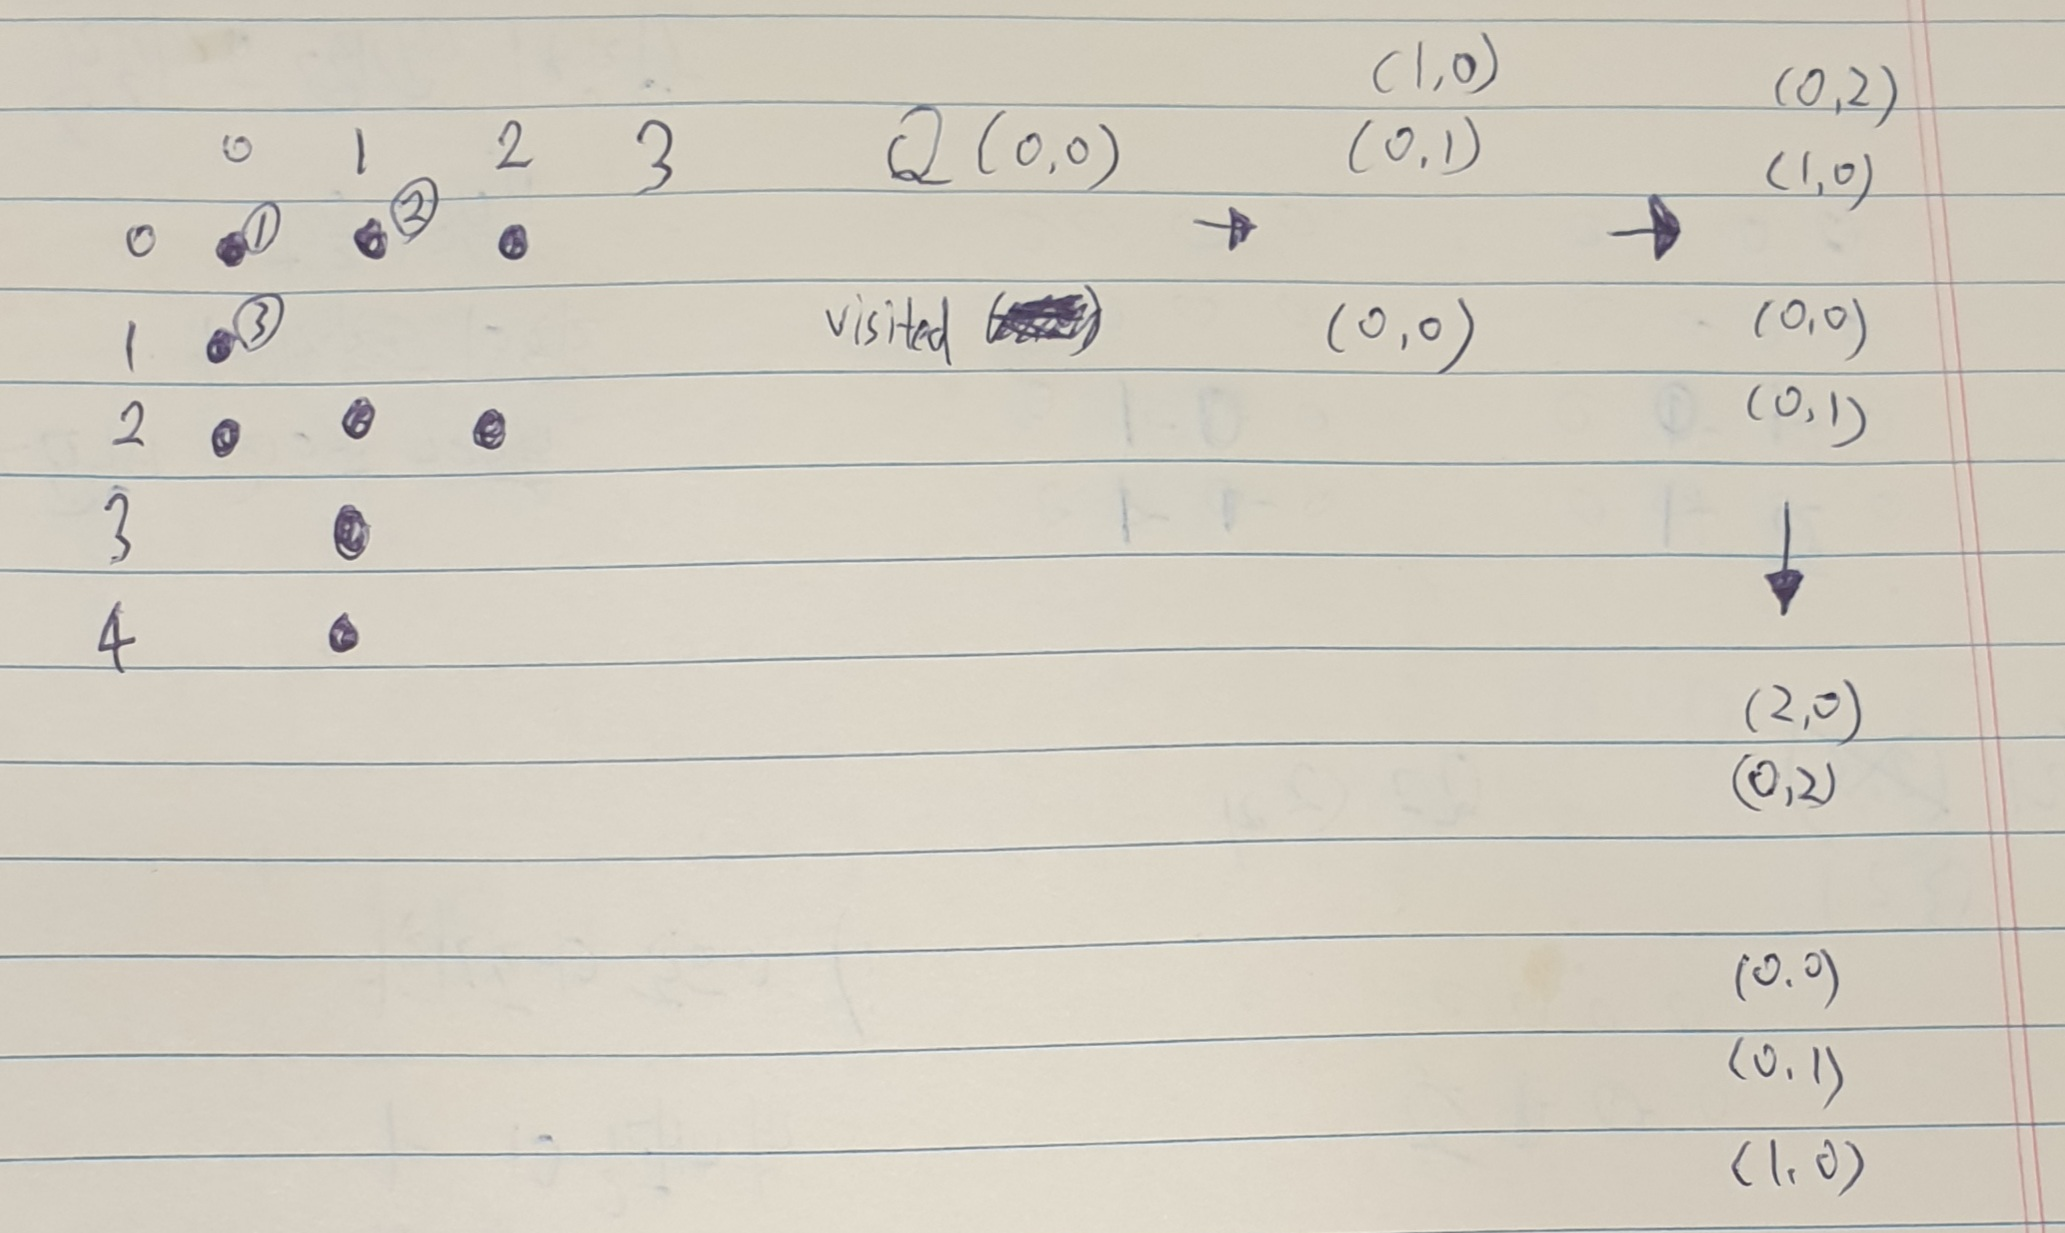 (1,0) (0,2)
0 1 2 3 Q (0,0) (0,1) (1,0)
0 ① ② →  →
1 ③ visited (0,0) (0,0)
2 (0,1)
3 ↓
4
(2,0)
(0,2)
(0.0)
(0.1)
(1.0)